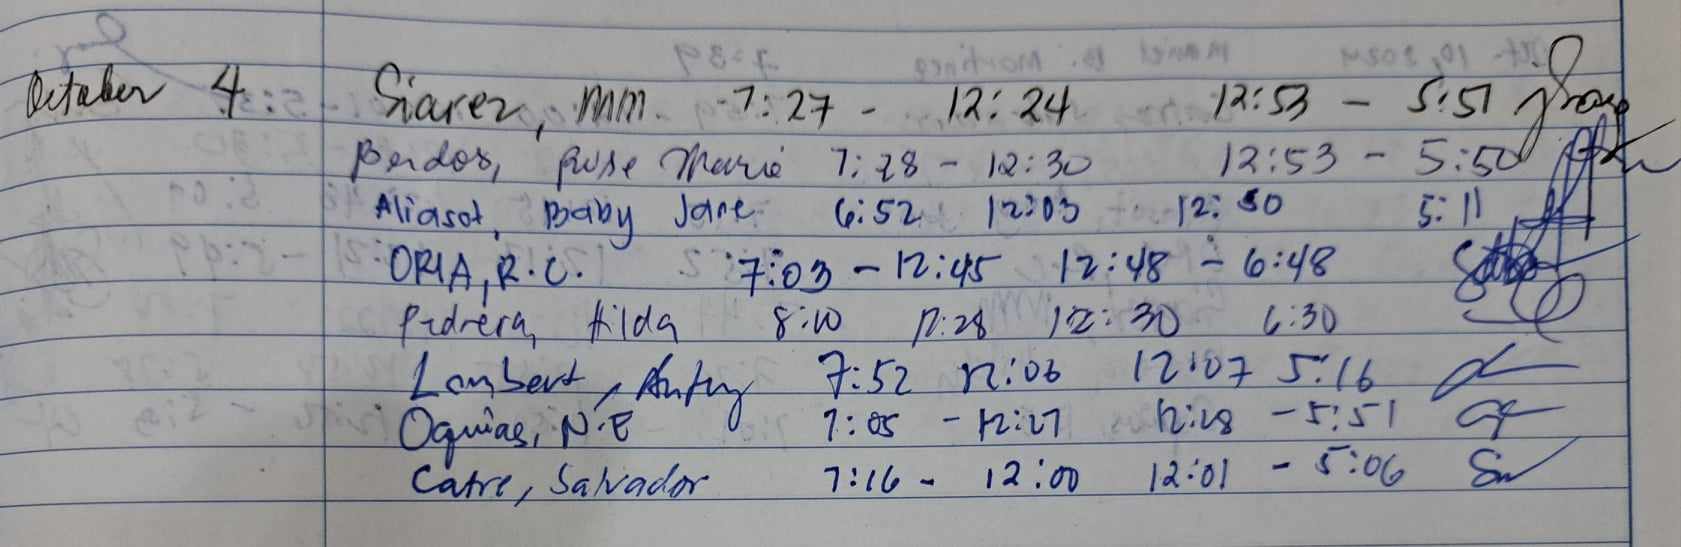 October 4 Siarez, MM. 7:27 - 12:24 12:53 - 5:51
Bendos, Rose Marie 7:28 - 12:30 12:53 - 5:50
Aliasot, Baby Jane 6:52 12:03 12:30 5:11
ORIA, R.C. 7:03 - 12:45 12:48 - 6:48
Pedrera, Hilda 8:10 12:28 12:30 6:30
Lambert, 7:52 12:06 12:07 5:16
Oquias, N.E 7:05 - 12:27 12:28 - 5:51
Catre, Salvador 7:16 - 12:00 12:01 - 5:06